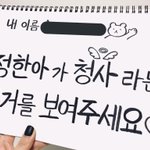 내 이름
정한아가 청사라는
거를 보여주세요♡